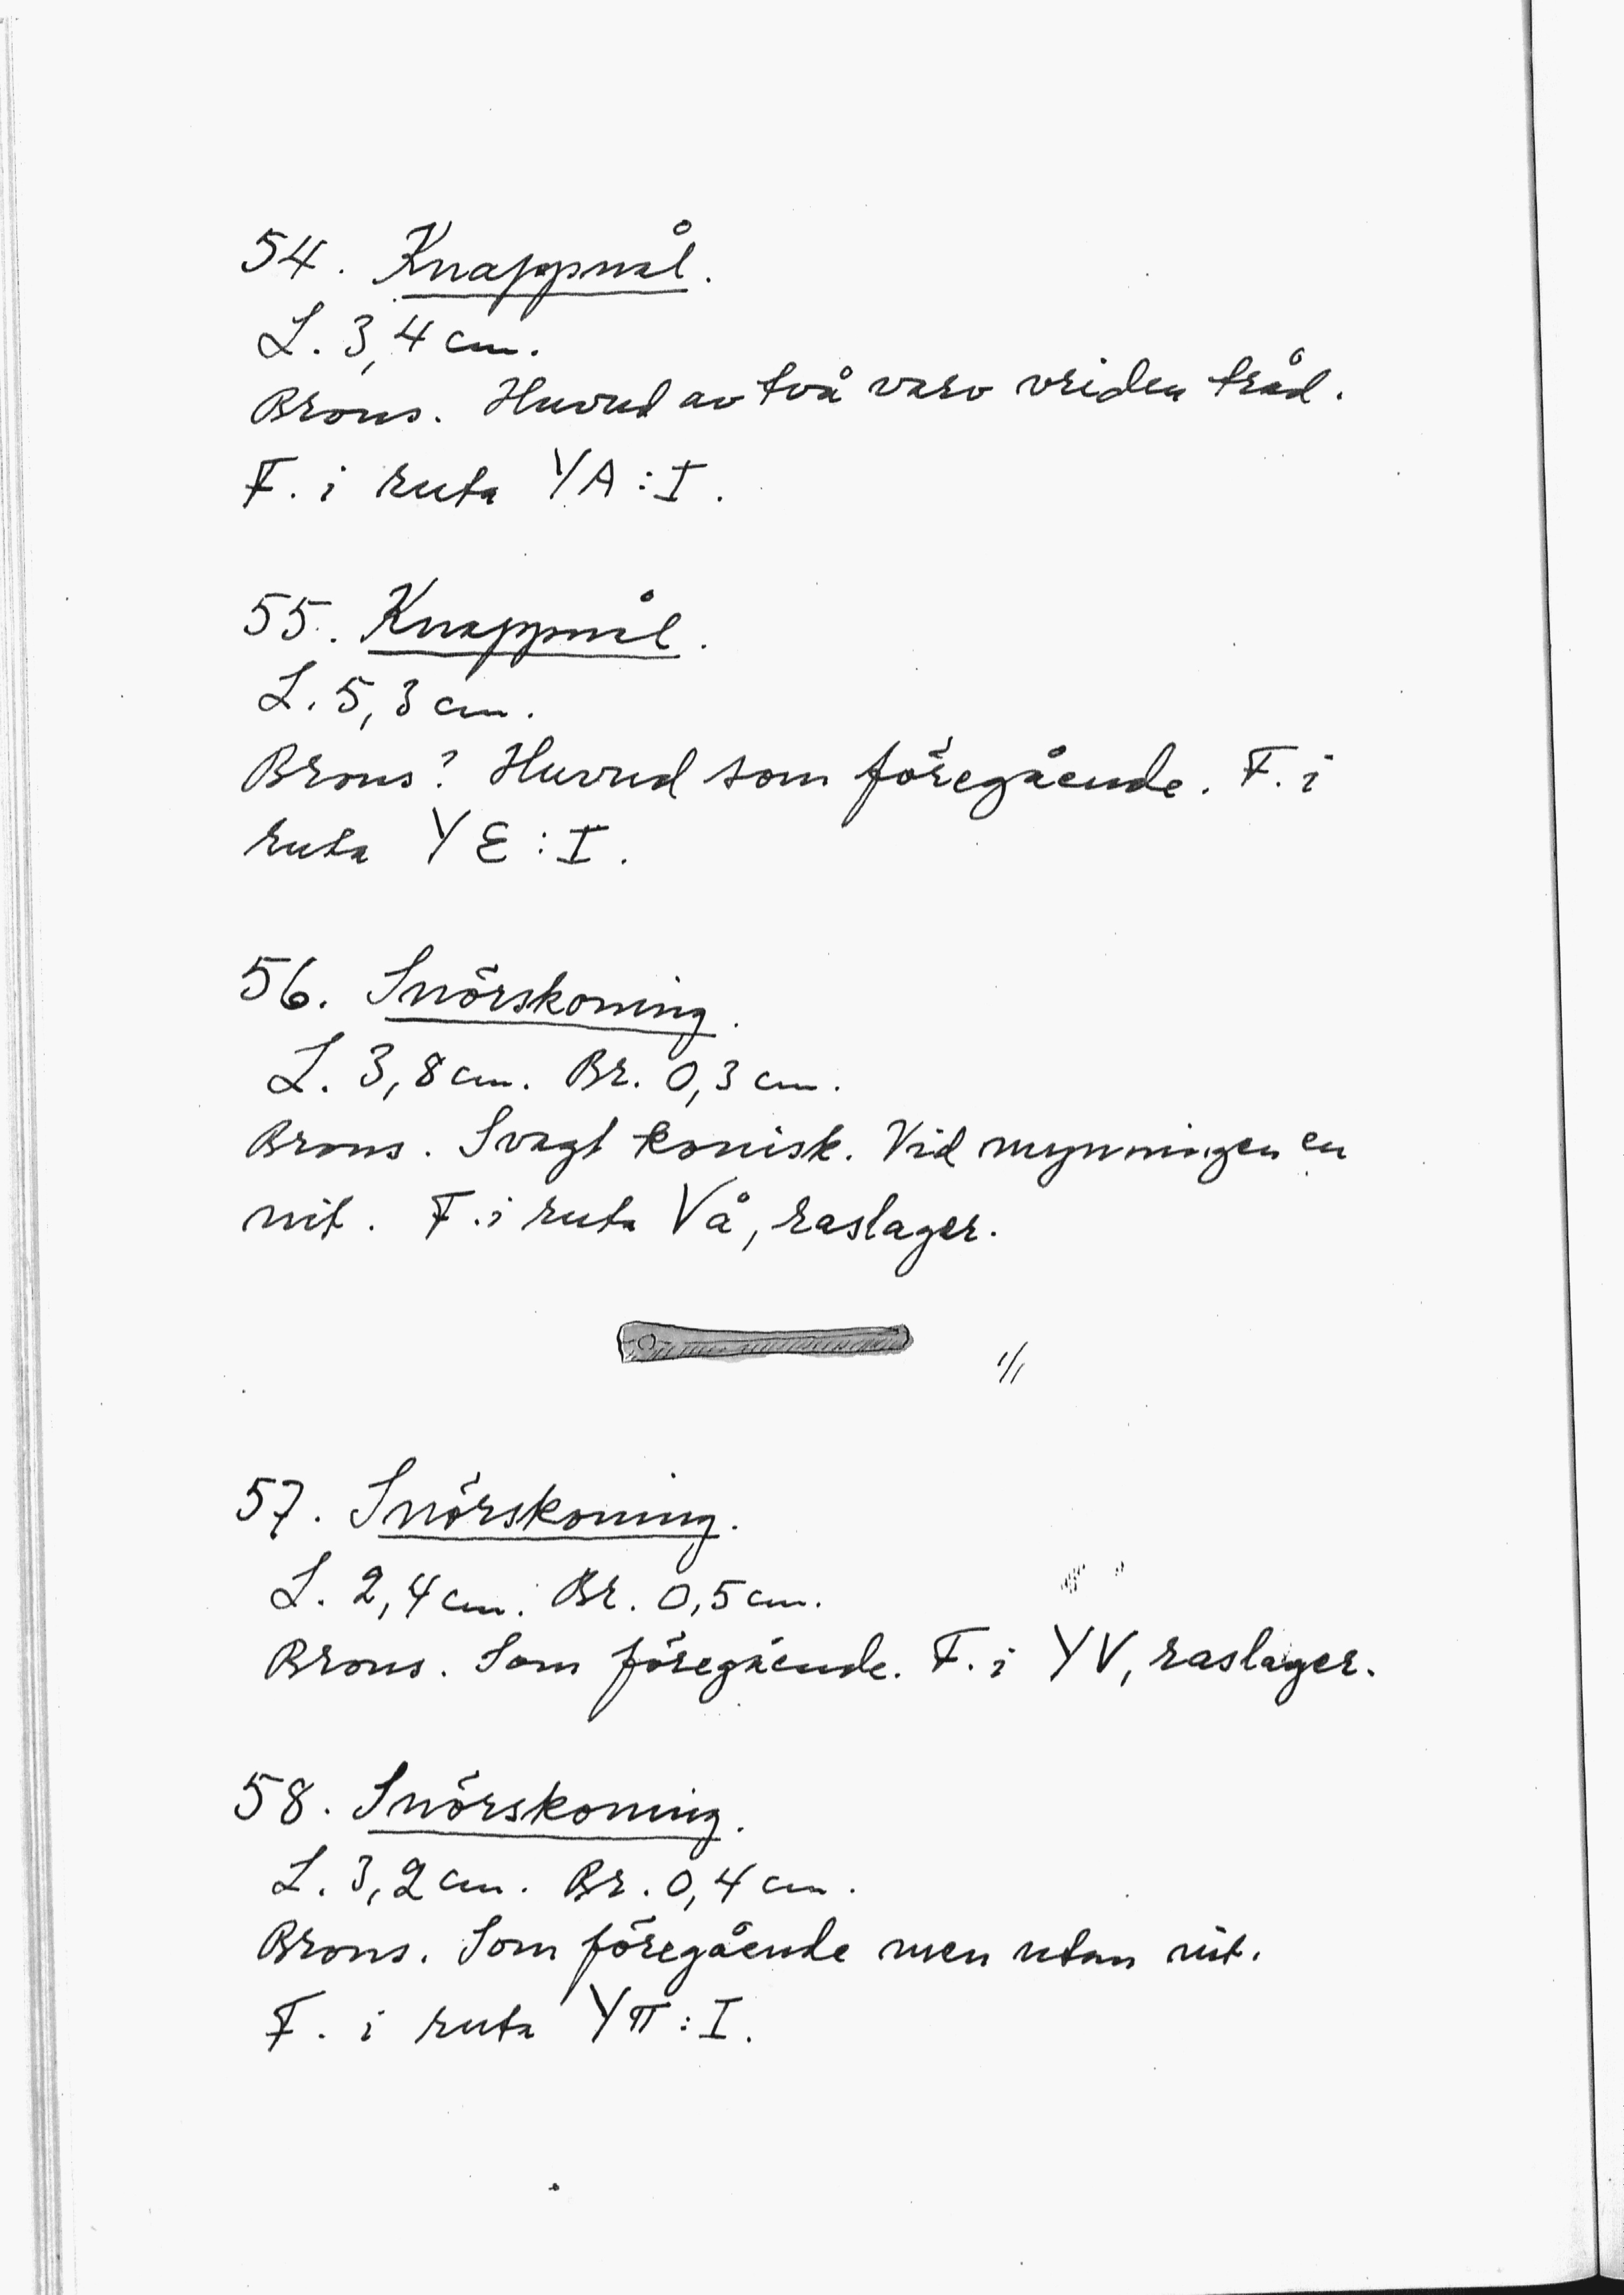 54. Knappnål.
L. 3,4 cm.
Brons. Huvud av två varv vriden tråd.
F. i ruta YA:I.
55. Knappnål.
L. 5,3 cm.
Brons? Huvud som föregående. F. i
ruta YE:I.
56. Snörskoning.
L. 3,8 cm. Br. 0,3 cm.
Brons. Svagt konisk. Vid mynningen en
nit. F. i ruta Vå, raslager.
1/1
57. Snörskoning.
L. 2,4 cm. Br. 0,5 cm.
Brons. Som föregående. F. i YV, raslager.
58. Snörskoning.
L. 3,2 cm. Br. 0,4 cm.
Brons. Som föregående men utan nit.
F. i ruta Yπ:I.